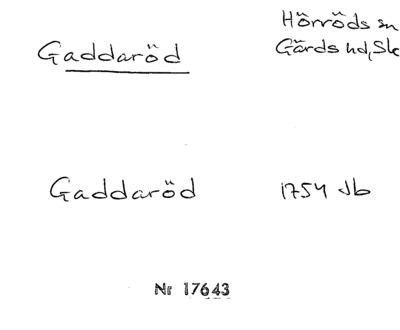 Hörröds sn
Gaddaröd
Gärds hd, Sk
Gaddaröd 1754 Jb
Nr 17643